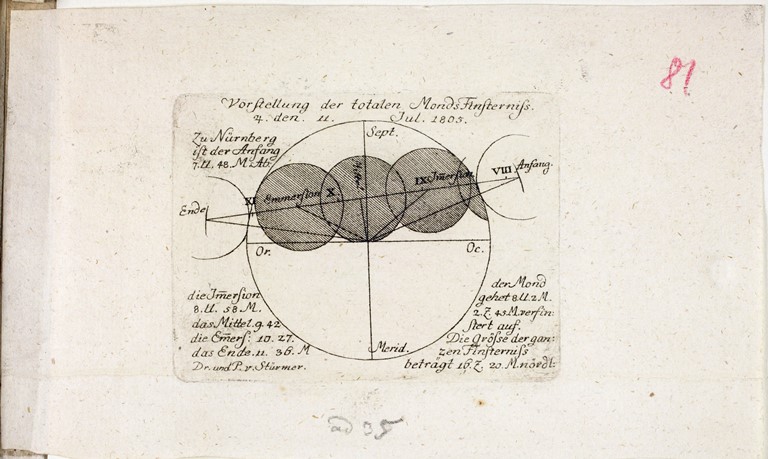 81
Vorstellung der totalen MondsFinsterniss.
♃. den. 11. Jul. 1805.
Zu Nürnberg
ist der Anfang
7. U. 48. M. Ab.
Sept.
Anfang.
VIII
IX
Im̅ersion
Mittel
X
Emmersion
XI
Ende
Or.
Oc.
Merid.
die Im̅ersion
8. U. 58. M.
das Mittel. 9. 42
die Em̅ers: 10. 27.
das Ende. 11. 36. M
Dr. und P. v. Stürmer.
der Mond
gehet 8 U. 2 M.
2. Z 45 M. verfin:
stert auf.
Die Grösse der gan:
zen Finsterniss
beträgt 16. Z. 20. M. nördl:
ad 35